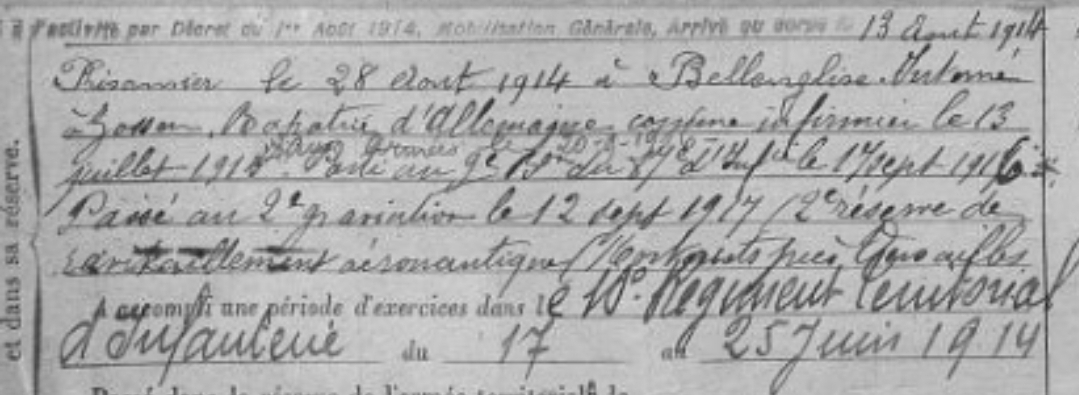 et dans sa réserve.
l'activité par Décret du 1er Août 1914, Mobilisation Générale, Arrivé au corps le 13 Aout 1914
Prisonnier le 28 Aout 1914 à Bellenglise. Interné
à Gossen. Rapatrié d'Allemagne comme infirmier le 13
juillet 191 Passé au 9e Bon du 87e d'Infie le 17 sept 1916
Passé au 2e gr aviation le 12 sept 1917 (2e réserve de
ravitaillement aéronautique près Versailles
A accompli une période d'exercices dans le 10e Régiment Territorial
d'Infanterie du 17 au 25 Juin 1914
Passé dans la réserve de l'armée territoriale le